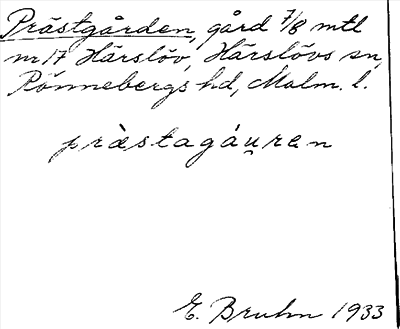 Prästgården, gård 7/8 mtl
nr 17 Härslöv, Härslövs sn,
Rönnebergs hd, Malm. l.
prὰstagáu̯ren
E. Bruhn 1933